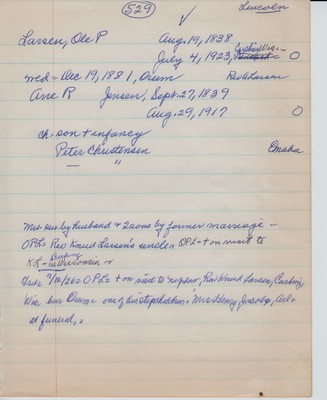 529 ✓ Lincoln
Larsen, Ole P Aug. 19, 1838
July 4, 1923, Cushing Wis - O
med = Dec 19, 1881, Orum Rev K Larsen
Ane R Jensen, Sept. 27, 1839
Aug. 29, 1917 O
ch. son + infancy
Peter Christensen Omaha
— "
Mrs sur by husband + 2 sons by former marriage -
OPL = Rev Knud Larson's uncle. OPL = + on visit to
KL = Cushing Wisconsin
7/12/ = OPL = + on visit to nephew, Rev Knud Larsen, Cushing,
Wis bur Orum = one of his stepchildren, Mrs Henry Jacoby,
at funeral,